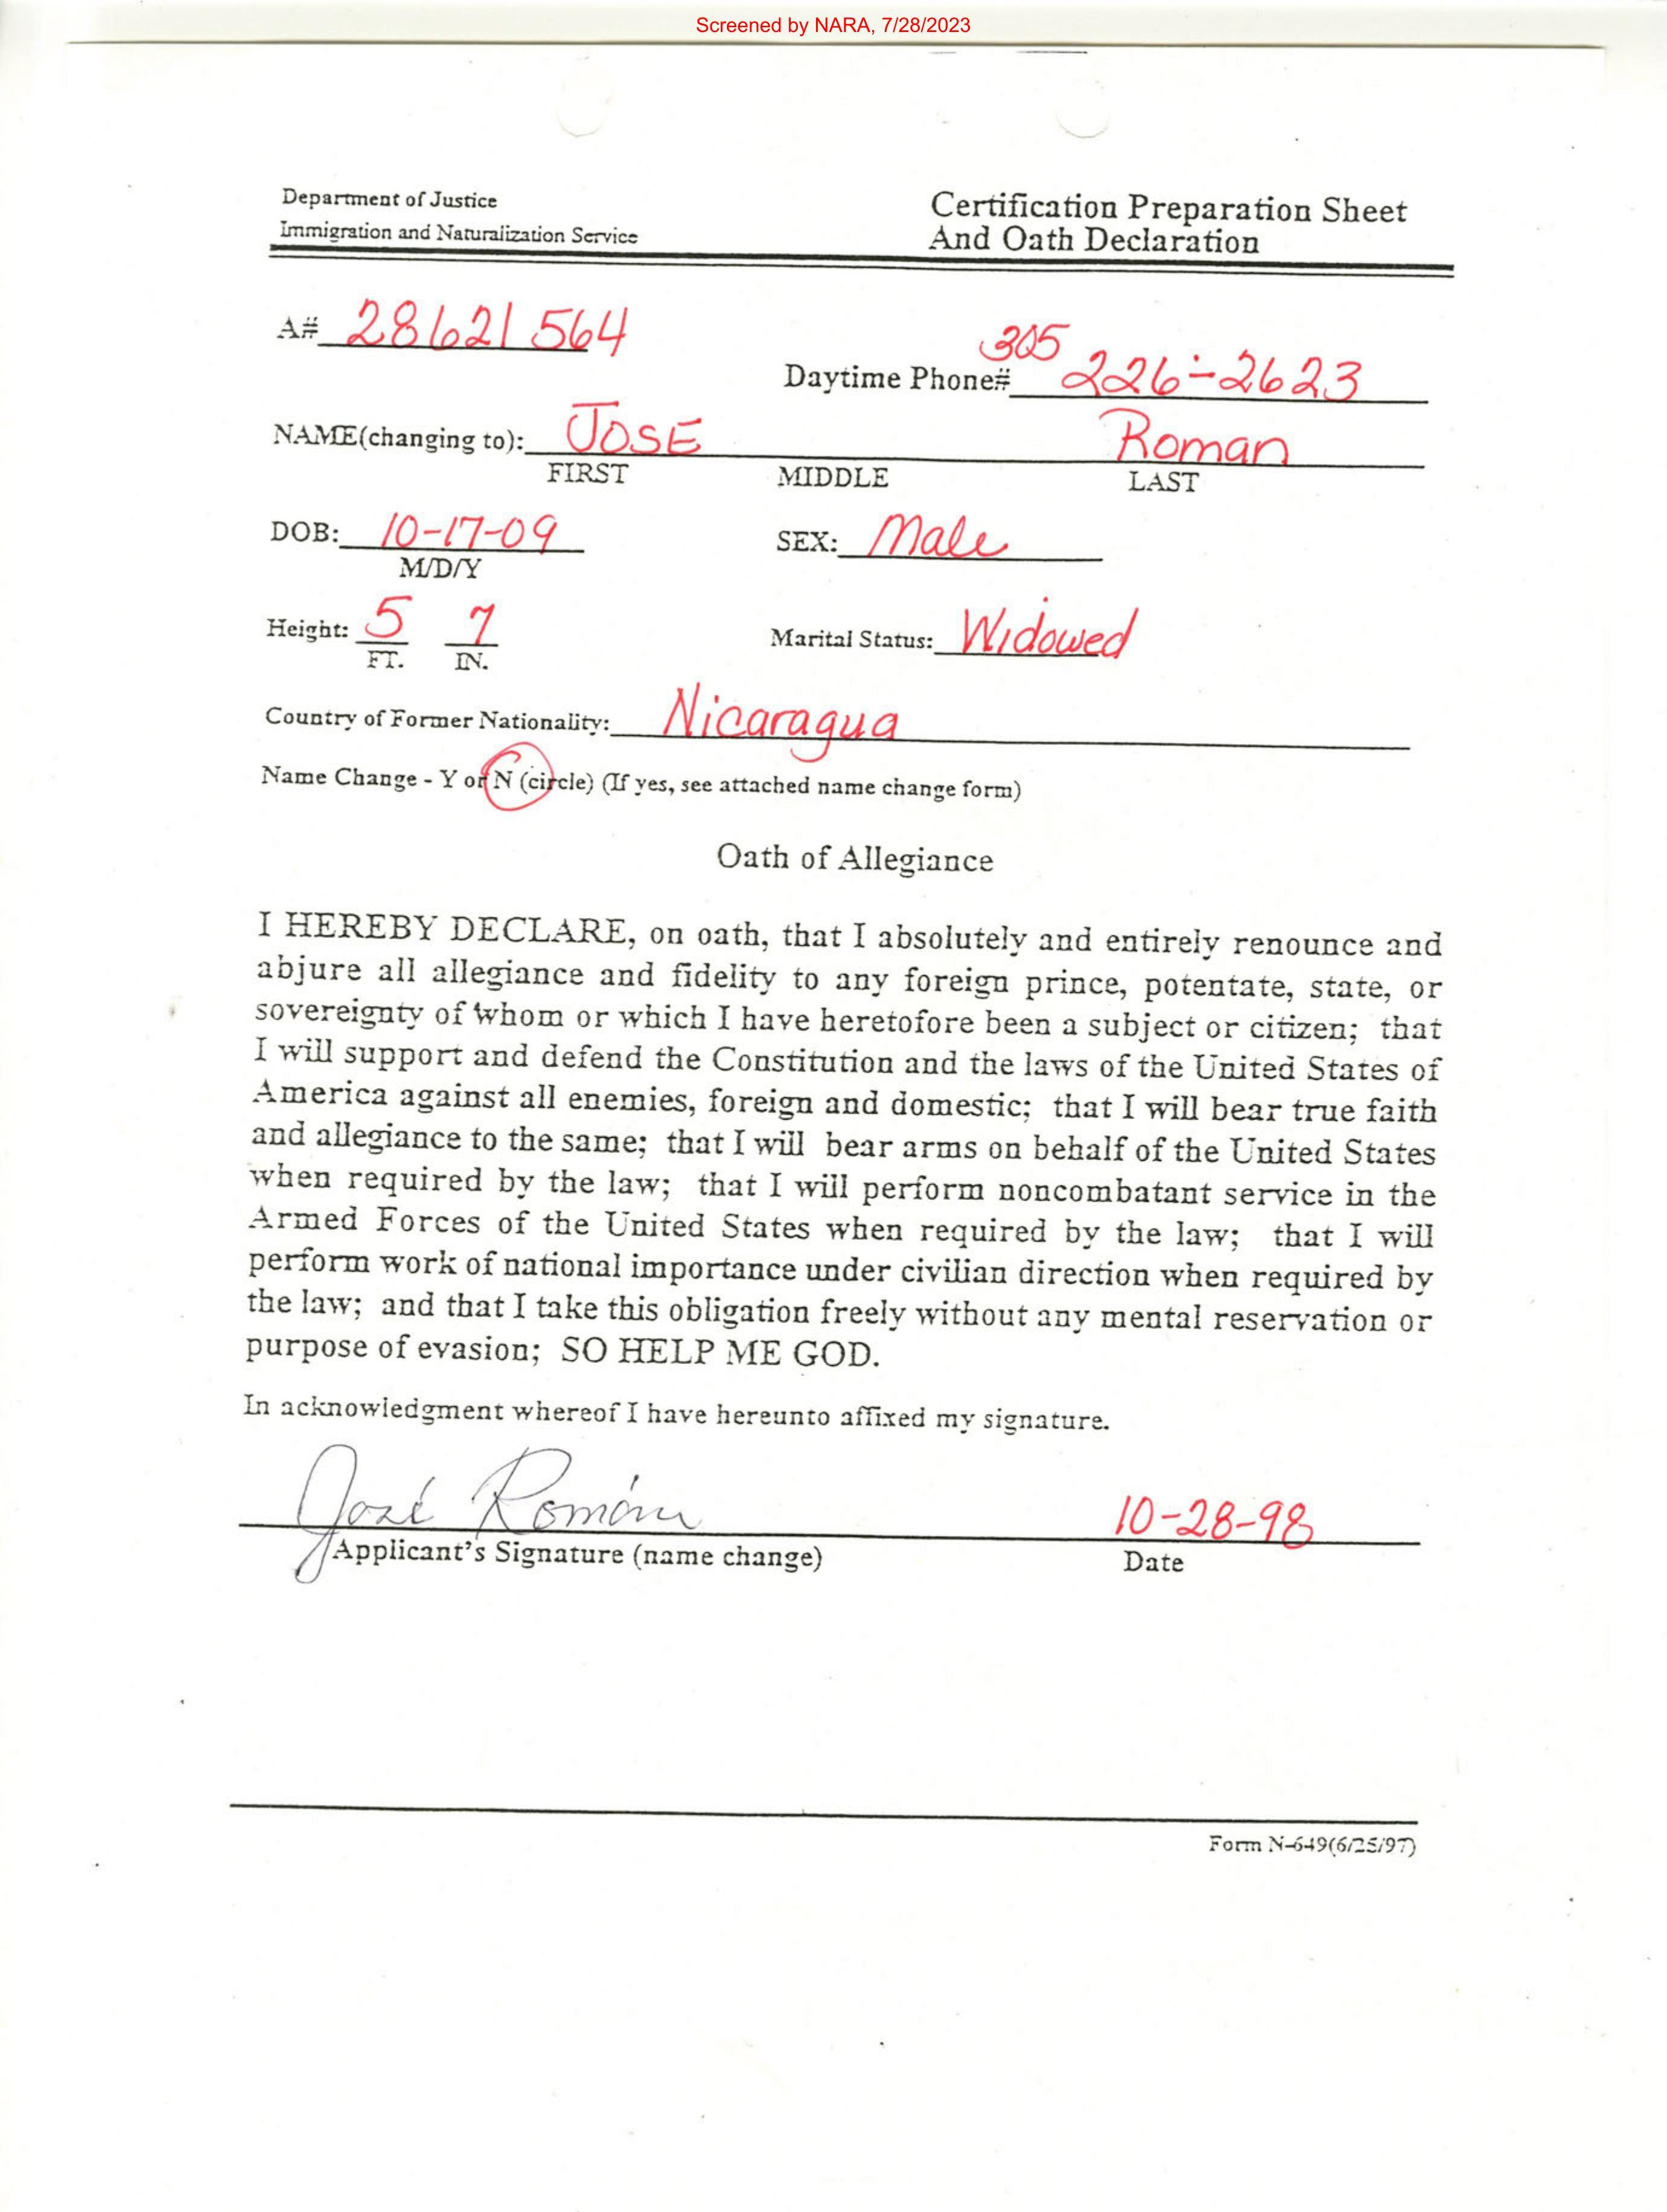 Screened by NARA, 7/28/2023
Department of Justice
Immigration and Naturalization Service
Certification Preparation Sheet
And Oath Declaration
A# 28621564
Daytime Phone# 305 226-2623
NAME(changing to): JOSE Roman
FIRST MIDDLE LAST
DOB: 10-17-09 SEX: Male
M/D/Y
Height: 5 7 Marital Status: Widowed
FT. IN.
Country of Former Nationality: Nicaragua
Name Change - Y or N (circle) (If yes, see attached name change form)
Oath of Allegiance
I HEREBY DECLARE, on oath, that I absolutely and entirely renounce and
abjure all allegiance and fidelity to any foreign prince, potentate, state, or
sovereignty of whom or which I have heretofore been a subject or citizen; that
I will support and defend the Constitution and the laws of the United States of
America against all enemies, foreign and domestic; that I will bear true faith
and allegiance to the same; that I will bear arms on behalf of the United States
when required by the law; that I will perform noncombatant service in the
Armed Forces of the United States when required by the law; that I will
perform work of national importance under civilian direction when required by
the law; and that I take this obligation freely without any mental reservation or
purpose of evasion; SO HELP ME GOD.
In acknowledgment whereof I have hereunto affixed my signature.
José Román 10-28-98
Applicant's Signature (name change) Date
Form N-649(6/25/97)